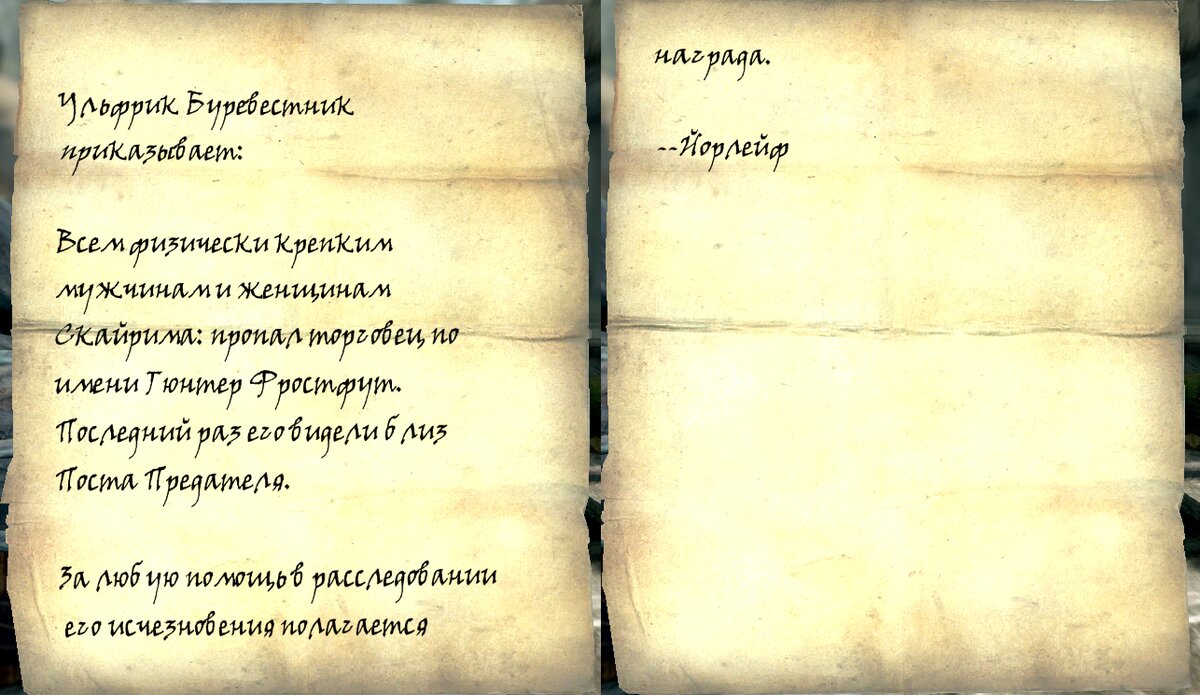 Ульфрик Буревестник
приказывает:
Всем физически крепким
мужчинам и женщинам
Скайрима: пропал торговец по
имени Гюнтер Фростфут.
Последний раз его видели близ
Поста Предателя.
За любую помощь в расследовании
его исчезновения полагается
награда.
--Йорлейф